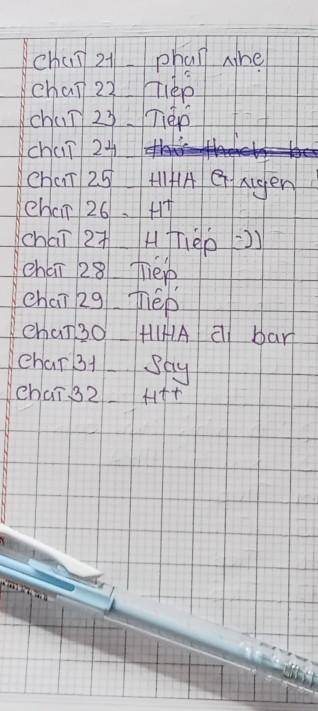 chat 21 - phạt nhẹ
chat 22 - Tiếp
chat 23 - Tiếp
chat 24
chat 25 - HIHA
chat 26 - HT
chat 27 - H Tiếp :))
chat 28 - Tiếp
chat 29 - Tiếp
chat 30 - HIHA đi bar
chat 31 - Say
chat 32 - H++